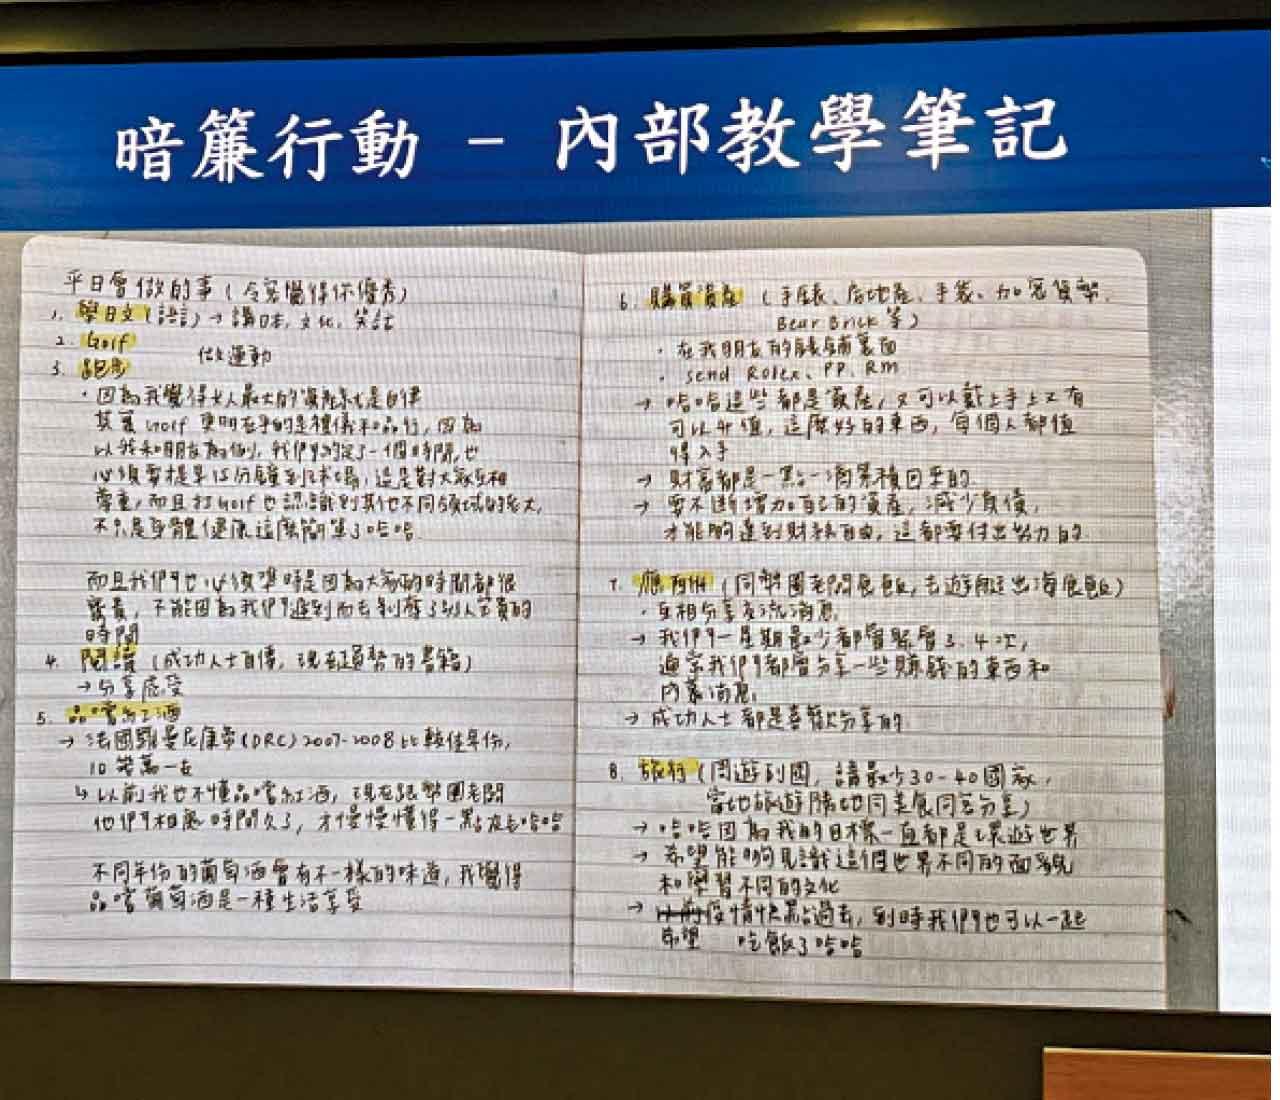 暗簾行動 - 內部教學筆記
平日會做的事(令客覺得你優秀)
1. 學日文(語言)→講日本,文化,笑話
2. Golf
做運動
3. 跑步
・因為我覺得女人最大的資產就是自律
其實Golf更明在乎的是禮儀和品行,因為
以我和朋友為例,我們約定了一個時間,也
必須要提早15分鐘到球場,這是對大家互相
尊重,而且打Golf也認識到其他不同領域的老大,
不只是身體健康這麼簡單了哈哈.
而且我們也必須準時是因為大家的時間都很
寶貴,不能因為我們遲到而去剝奪了別人寶貴的
時間
4. 閱讀(成功人士自傳,現在趨勢的書籍)
→分享感受
5. 品嚐紅酒
→法國羅曼尼康帝(DRC) 2007-2008比較佳年份,
10幾萬一支
↳以前我也不懂品嚐紅酒,現在跟幣圈老闆
他們相處時間久了,才慢慢懂得一點皮毛哈哈
不同年份的葡萄酒會有不一樣的味道,我覺得
品嚐葡萄酒是一種生活享受
6. 購買資產(手錶、房地產、手袋、加密貨幣、
Bear Brick 等)
・在我朋友的錶鋪裏面
・send Rolex、PP、RM
→哈哈這些都是資產,又可以戴上手上又有
可以升值,這麼好的東西,每個人都值
得入手
→財富都是一點一滴累積回來的
→要不斷增加自己的資產,減少負債,
才能夠達到財務自由,這都要付出努力的.
7. 應酬(同幣圈老闆食飯,去遊艇出海食飯)
・互相分享交流消息.
→我們一星期最少都會聚會3、4次,
通常我們都會分享一些賺錢的東西和
內幕消息.
→成功人士都是喜歡分享的
8. 旅行(周遊列國,講最少30-40國家,
當地旅遊勝地同美食同客分享)
→哈哈因為我的目標一直都是環遊世界
→希望能夠見識這個世界不同的面貌
和學習不同的文化
→以前疫情快點過去,到時我們也可以一起
希望 吃飯了哈哈